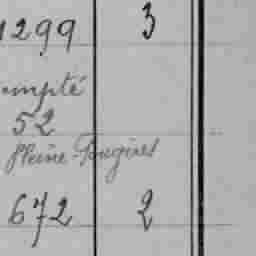 1299 3
ompté
52
Pleine-Fougères
672 2